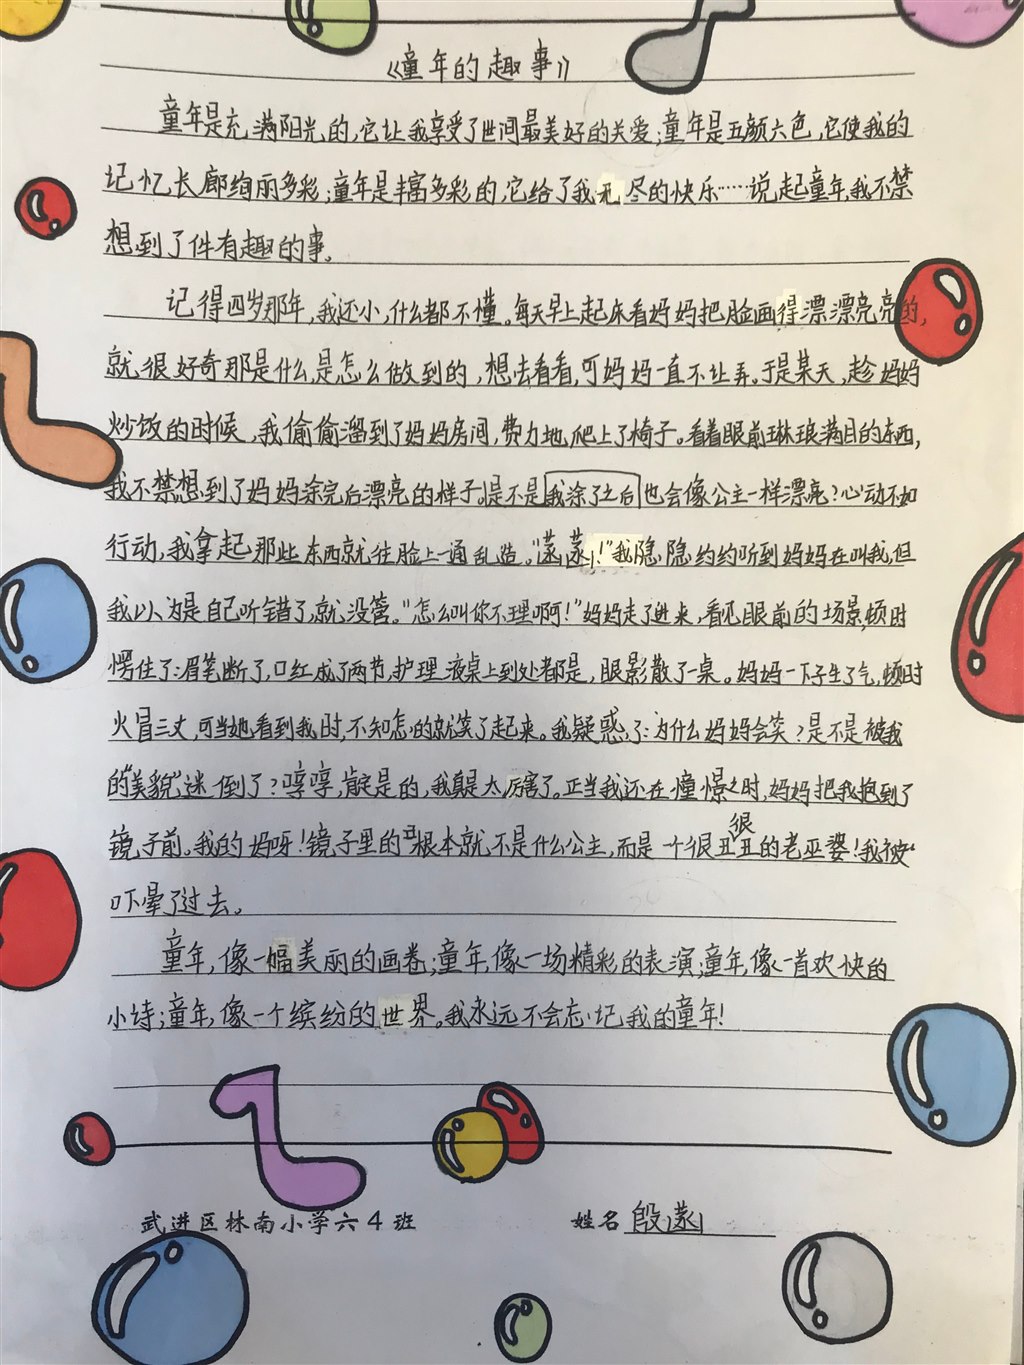 《童年的趣事》
童年是充满阳光的,它让我享受了世间最美好的关爱;童年是五颜六色,它使我的
记忆长廊绚丽多彩;童年是丰富多彩的,它给了我无尽的快乐……说起童年,我不禁
想到了件有趣的事。
记得四岁那年,我还小,什么都不懂。每天早上起床看妈妈把脸画得漂漂亮亮的,
就很好奇那是什么,是怎么做到的,想去看看,可妈妈一直不让弄。于是某天,趁妈妈
炒饭的时候,我偷偷溜到了妈妈房间,费力地爬上了椅子。看着眼前琳琅满目的东西,
我不禁想到了妈妈涂完后漂亮的样子。是不是我涂了之后也会像公主一样漂亮?心动不如
行动,我拿起那些东西就往脸上一通乱造。“菡菡!”我隐隐约约听到妈妈在叫我,但
我以为是自己听错了,就没管。“怎么叫你不理啊!”妈妈走了进来,看见眼前的场景,顿时
愣住了:眉笔断了,口红成了两节,护理液桌上到处都是,眼影散了一桌。妈妈一下子生了气,顿时
火冒三丈,可当她看到我时,不知怎的就笑了起来。我疑惑了:为什么妈妈会笑?是不是被我
的“美貌”迷倒了?哼哼,肯定是的,我真是太厉害了。正当我还在憧憬之时,妈妈把我抱到了
镜子前。我的妈呀!镜子里的根本就不是什么公主,而是一个很丑很丑的老巫婆!我被
吓晕了过去。
童年,像一幅美丽的画卷;童年,像一场精彩的表演;童年,像一首欢快的
小诗;童年,像一个缤纷的世界。我永远不会忘记我的童年!
武进区林南小学六4班
姓名 殷